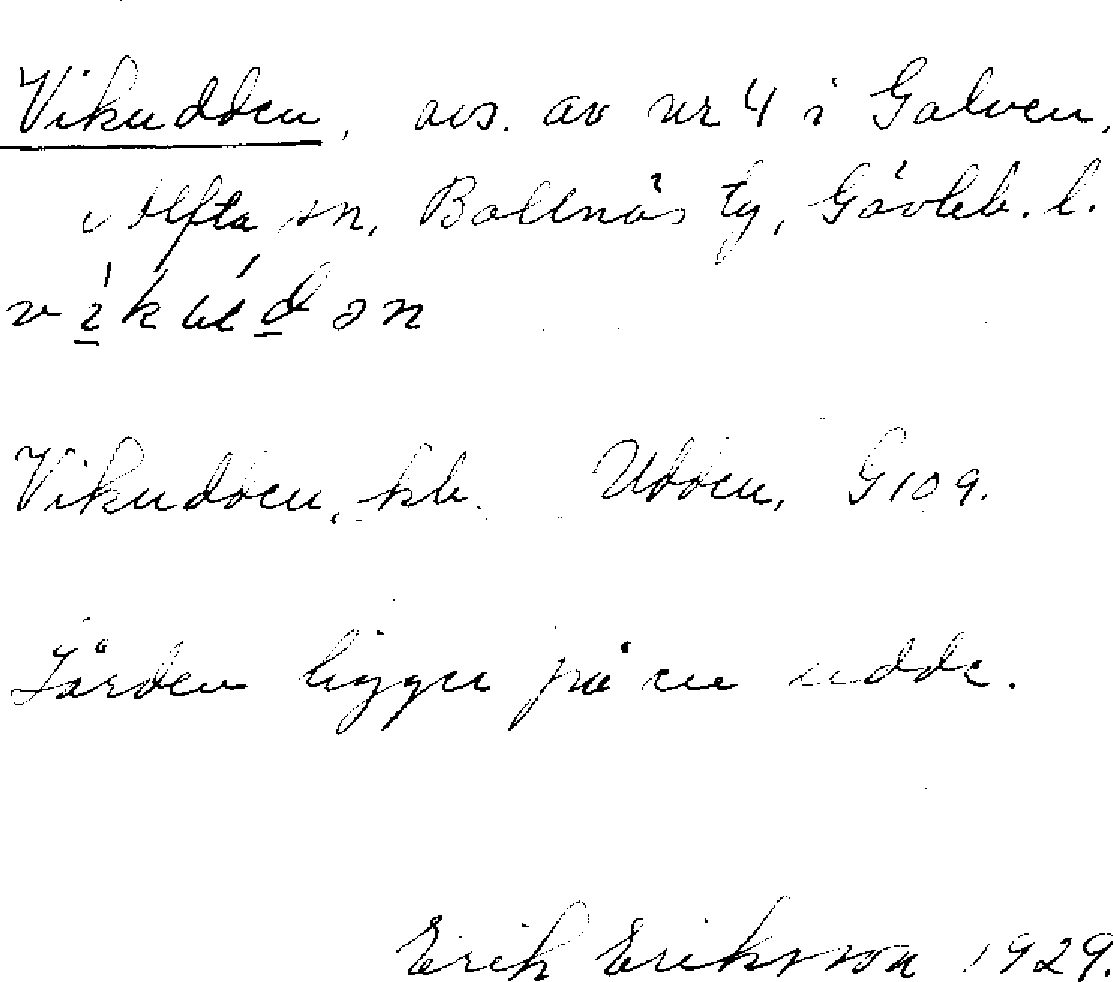 Vikudden, avs. av nr 4 i Galven,
i Alfta sn, Bollnäs tg, Gävleb. l.
víkúdən
Vikudden, kb. Udden, G 109.
Gården ligger på en udde.
Erik Eriksson 1929.